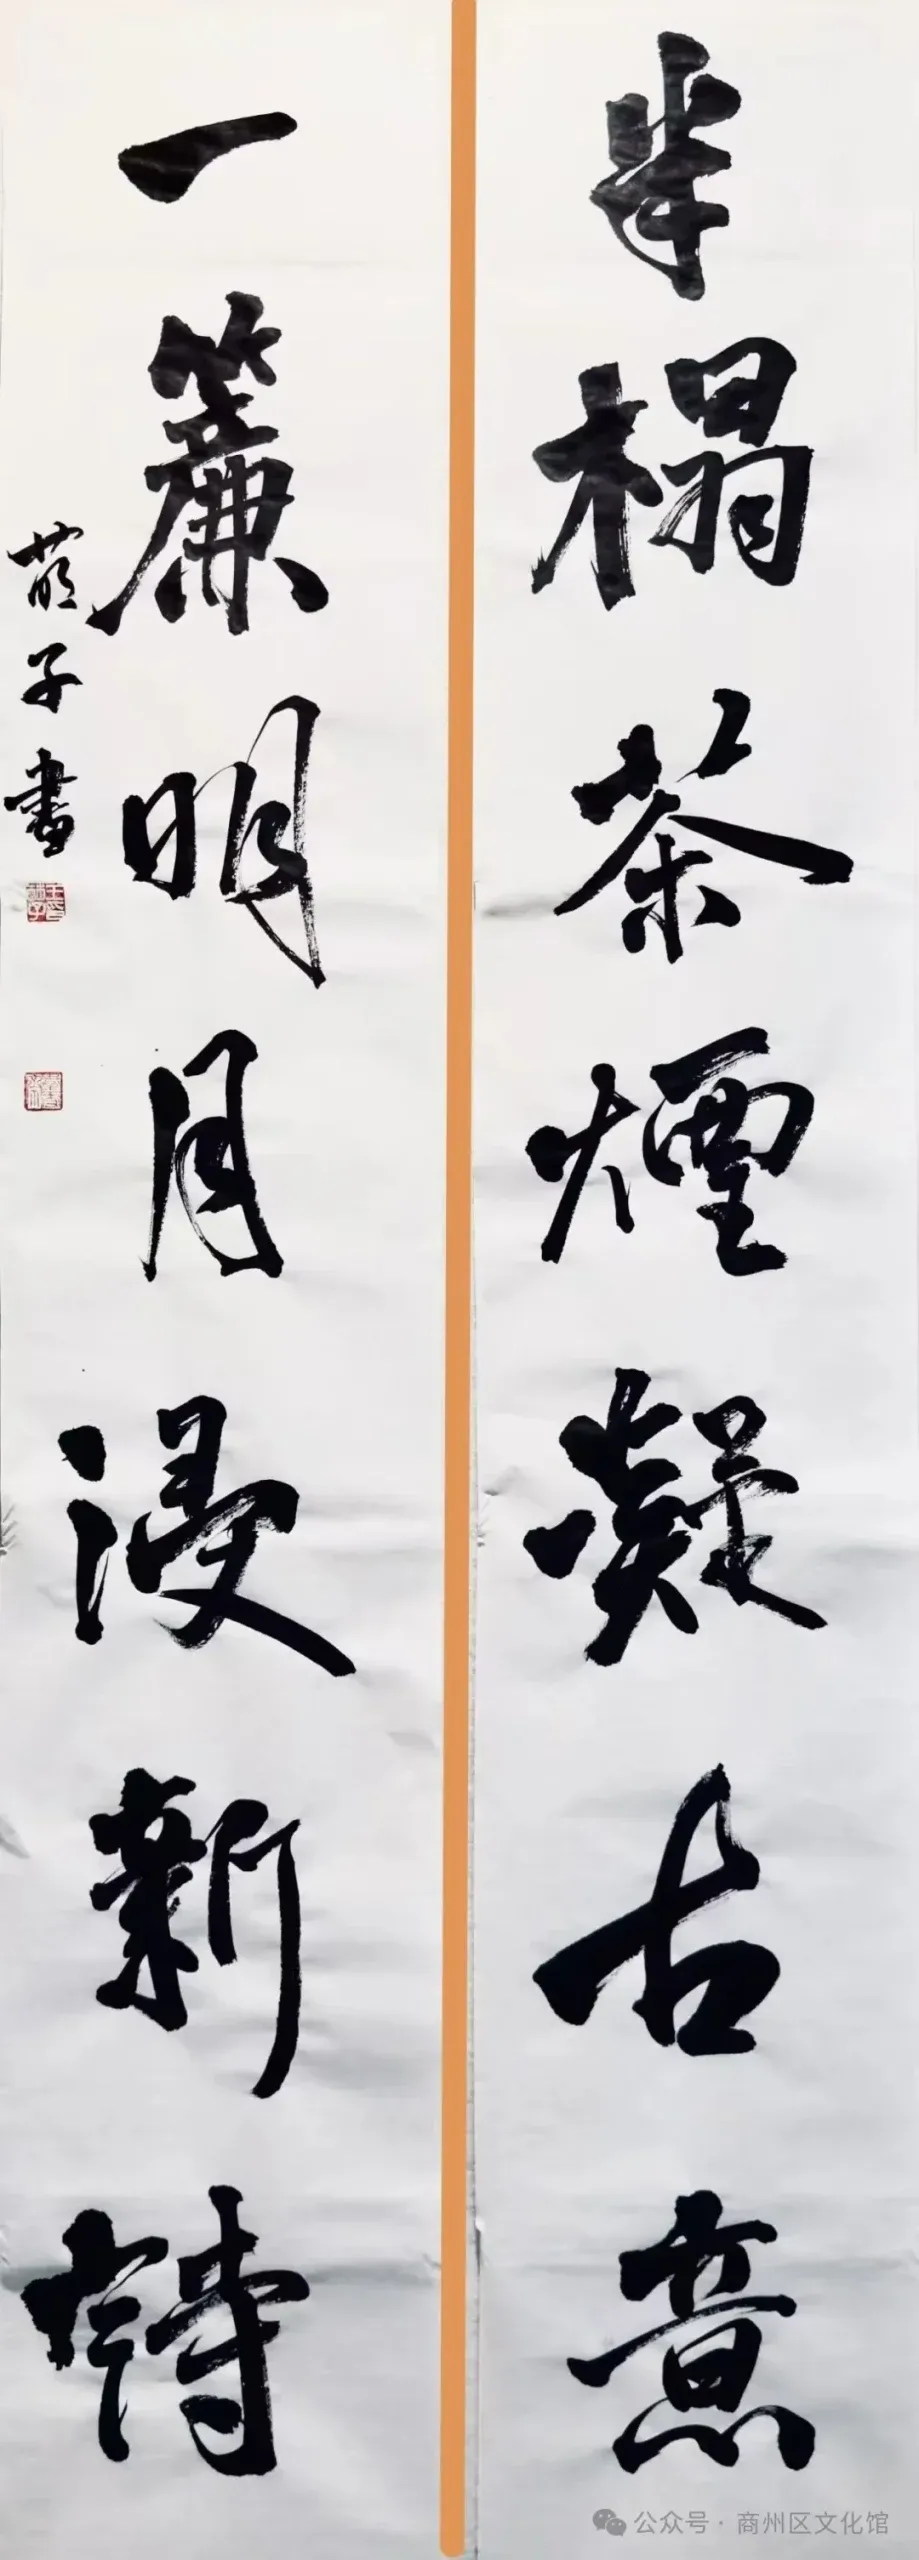 半榻茶煙凝古意
一簾明月浸新詩
萌子書
公众号·商州区文化馆